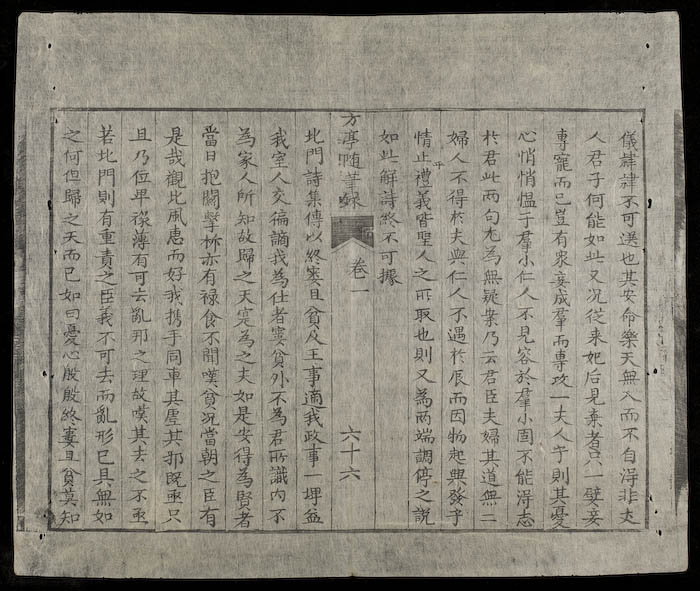 儀棣棣不可選也其安命樂天無入而不自淂非大
人君子何能如此又况従来妃后見棄者只一嬖妾
專寵而已豈有衆妾成羣而專攻一夫人乎則其憂
心悄悄愠于羣小仁人不見容於羣小固不能淂志
於君此两句尤為無疑案乃云君臣夫婦其道無二
婦人不得於夫與仁人不遇於辰而因物起興發乎
情止乎禮義皆聖人之所取也則又為两端調停之説
如此解詩終不可據
方亭随筆録 卷一 六十六
北門詩集傳以終窶且貧及王事適我政事一埤益
我室人交徧謫我為仕者窶貧外不為君所識内不
為家人所知故歸之天寔為之夫如是安得為賢者
當日抱關擊柝亦有禄食不聞嘆貧况當朝之臣有
是哉觀北風惠而好我携手同車其虚其邪既亟只
且乃位卑禄薄有可去亂邦之理故嘆其去之不亟
若北門則有重責之臣義不可去而亂形已具無如
之何但歸之天而已如曰憂心殷殷終窶且貧莫知